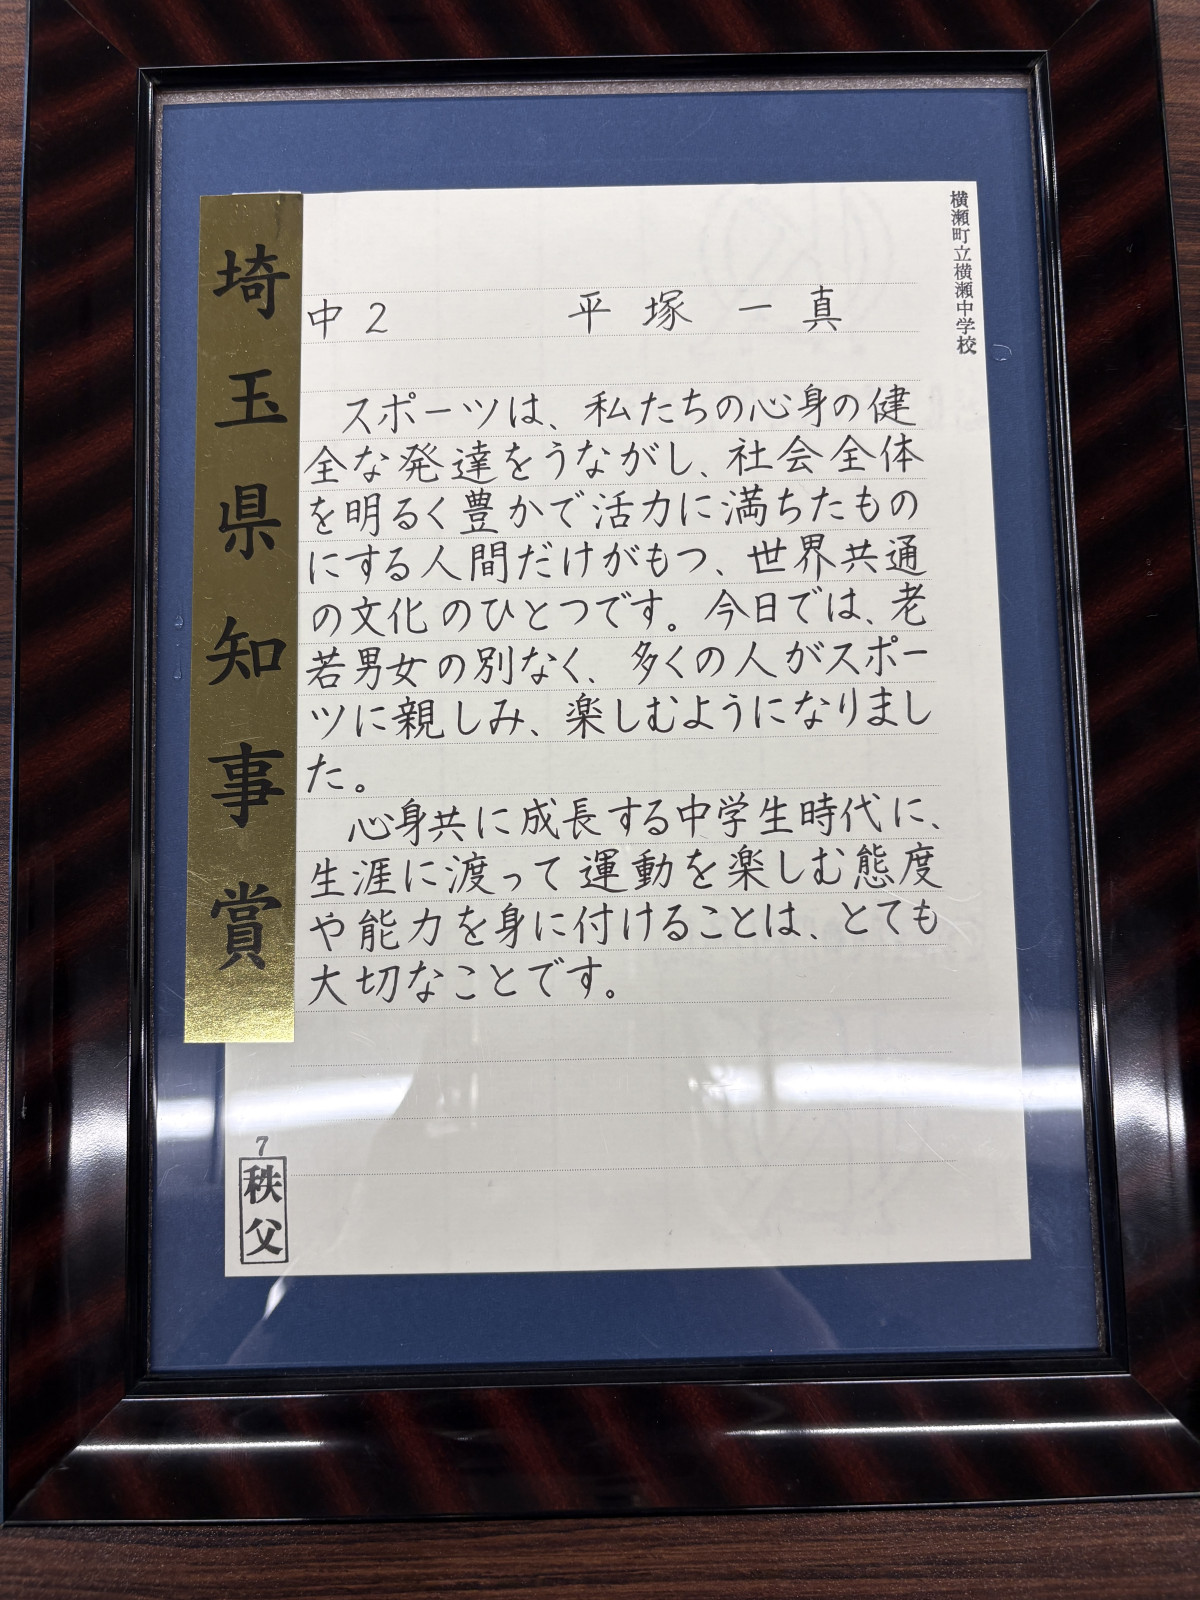 横瀬町立横瀬中学校
埼玉県知事賞
中2 平塚一真
スポーツは、私たちの心身の健
全な発達をうながし、社会全体
を明るく豊かで活力に満ちたもの
にする人間だけがもつ、世界共通
の文化のひとつです。今日では、老
若男女の別なく、多くの人がスポー
ツに親しみ、楽しむようになりまし
た。
心身共に成長する中学生時代に、
生涯に渡って運動を楽しむ態度
や能力を身に付けることは、とても
大切なことです。
7
秩父